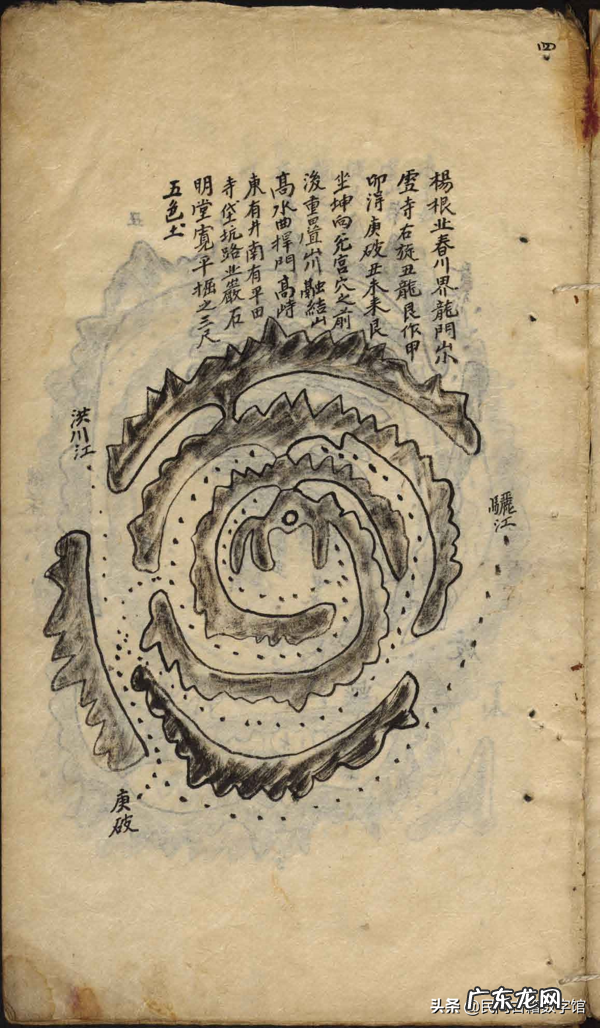 四
楊根北春川界龍門山
雪寺右旋丑龍艮作甲
卯淂庚破丑來艮
坐坤向宮穴之前
後重疊山川融結山
高水曲捍門高峙
東有井南有平田
寺垈坑路北巖石
明堂寬平掘之三尺
五色土
洪川江
驪江
庚破
广东龙网
头条 @民间古籍数字馆